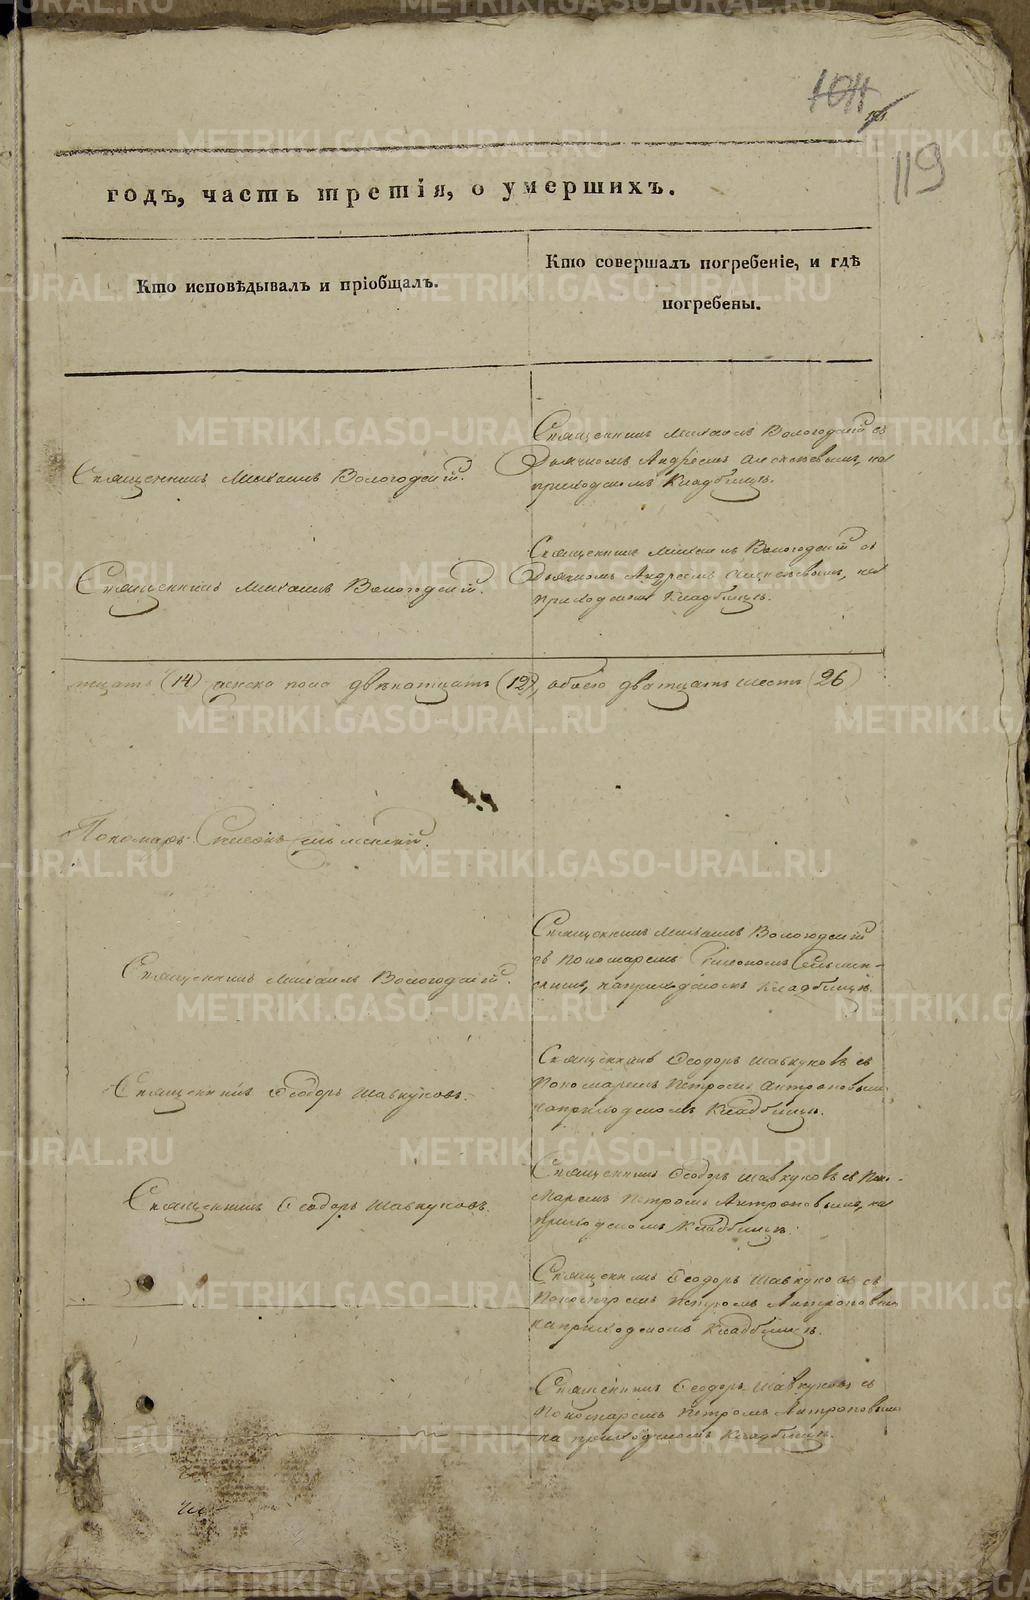 104
119
годъ, часть третія, о умершихъ.
Кто исповѣдывалъ и пріобщалъ.
Кто совершалъ погребеніе, и гдѣ
погребены.
Священникъ Михаилъ Вологодскій.
Священникъ Михаилъ Вологодскій съ
Дьячкомъ Андреемъ Алексѣевымъ, на
приходскомъ Кладбищѣ.
Священникъ Михаилъ Вологодскій.
Священникъ Михаилъ Вологодскій съ
Дьячкомъ Андреемъ Алексѣевымъ, на
приходскомъ Кладбищѣ.
тцать (14) женска пола двѣнатцать (12), обоего дватцать шесть (26)
Пономарь Симеонъ
Священникъ Михаилъ Вологодскій.
Священникъ Михаилъ Вологодскій
съ пономаремъ Симеономъ
на приходскомъ Кладбищѣ.
Священникъ Ѳеодоръ Шавкуновъ.
Священникъ Ѳеодоръ Шавкуновъ съ
Пономаремъ Петромъ Антроповымъ
на приходскомъ Кладбищѣ.
Священникъ Ѳеодоръ Шавкуновъ.
Священникъ Ѳеодоръ Шавкуновъ съ Поно-
маремъ Петромъ Антроповымъ, на
приходскомъ Кладбищѣ.
Священникъ Ѳеодоръ Шавкуновъ съ
Пономаремъ Петромъ Антроповымъ
на приходскомъ Кладбищѣ.
Священникъ Ѳеодоръ Шавкуновъ съ
Пономаремъ Петромъ Антроповымъ
на приходскомъ Кладбищѣ.
METRIKI.GASO-URAL.RU